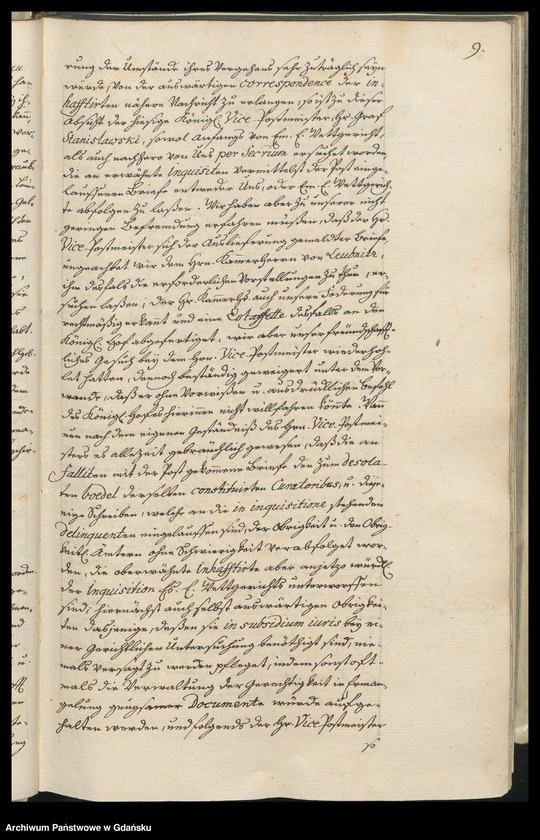 9.
rung der Umstände ihres Vergehens sehr zuträglich seyn
würde, von der auswärtigen correspondence der in-
hafftirten nähere Nachricht zu erlangen, so ist zu dieser
Absicht der hiesige Königl. Vice-Postmeister, Hr. Graf
Stanislawski, sowol Anfangs von Em. E. Wettgericht,
als auch nachhero von Uns per Secrium ersuchet worden
die an erwähnte Inquisiten vermittelst der Post einge-
lauffenen Briefe entweder Uns, oder Em. E. Wettgerich-
te abfolgen zu laßen. Wir haben aber zu unserer nicht
geringen Befremdung erfahren müßen, daß der Hr.
Vice-Postmeister sich der Auslieferung gemeldter Briefe,
ungeachtet wir dem Hrn. Kamerherren von Leubnitz,
ihm desfals die erforderlichen Vorstellungen zu thun, er-
suchen laßen, der Hr. Kammerhr. auch unsere Foderung für
rechtmäßig erkant und eine Estaffette desfalls an den
Königl. Hof abgefertiget, wir aber unser freundschafft-
liches Gesuch bey dem Hrn. Vice-Postmeister wiederhoh-
let hatten, dennoch beständig geweigert unter dem Vor-
wande, daß er ohne Vorwissen u. ausdrücklichen Befehl
des Königl. Hofes hierinnen nicht willfahren könte. Wann
nun nach dem eigenen Geständniß des Hrn. Vice-Postmei-
sters es allezeit gebräuchlich gewesen, daß die an
Falliten mit der Post gekommene Briefe den zum desola-
ten boedel derselben constituirten Curatoribus, u. dieje-
nige Schreiben, welche an die in inquisitione stehenden
Delinquenten eingelauffen sind, der Obrigkeit u. den Obrig-
keitl. Ämtern ohne Schwierigkeit verabfolget wor-
den, die oberwähnte Inhafftirte aber anjetzo würckl.
der Inquisition Es. E. Wettgerichts unterworffen
sind; hiernächst auch selbst auswärtigen Obrigkei-
ten dasjenige, deßen sie in subsidium iuris bey ei-
ner Gerichtlichen Untersuchung benöthigt sind, nie-
mals versagt zu werden pfleget, indem sonst oft-
mals die Verwaltung der Gerechtigkeit in Erman-
gelung gnugsamer Documente würde aufge-
halten werden, und folgends der Hr. Vice-Postmeister
so
Archiwum Państwowe w Gdańsku